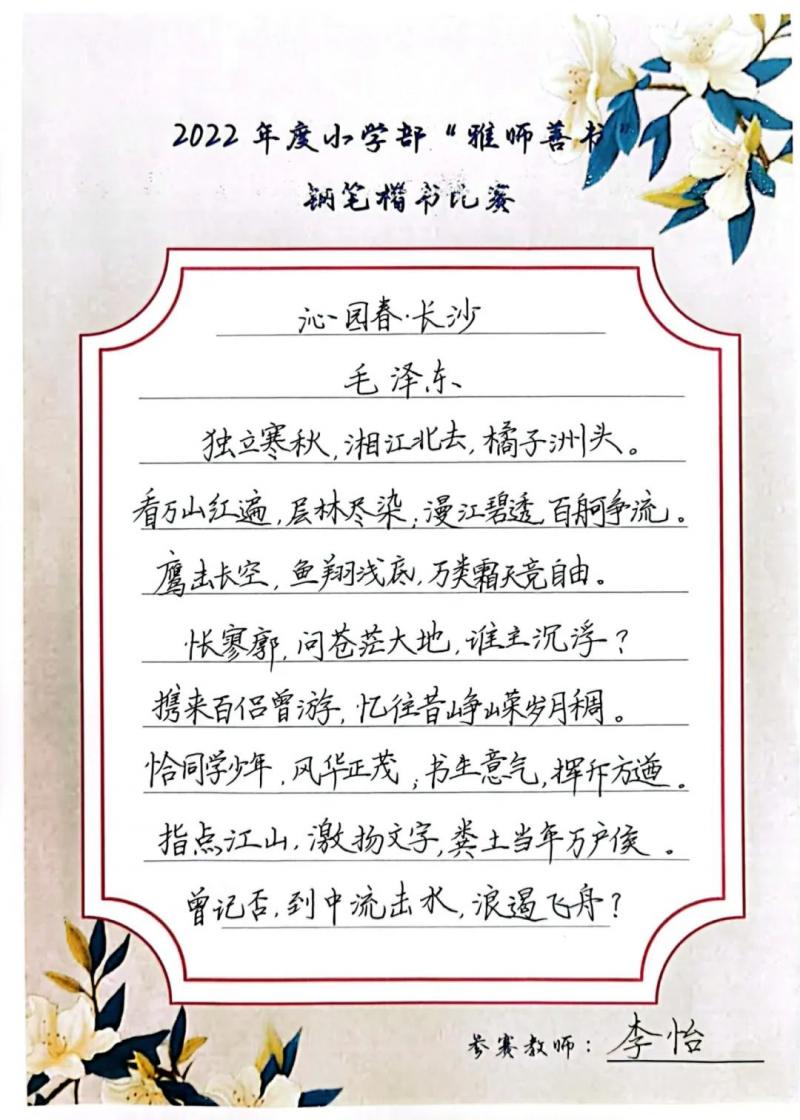 2022年度小学部“雅师善书”
钢笔楷书比赛
沁园春·长沙
毛泽东
独立寒秋,湘江北去,橘子洲头。
看万山红遍,层林尽染;漫江碧透,百舸争流。
鹰击长空,鱼翔浅底,万类霜天竞自由。
怅寥廓,问苍茫大地,谁主沉浮?
携来百侣曾游,忆往昔峥嵘岁月稠。
恰同学少年,风华正茂;书生意气,挥斥方遒。
指点江山,激扬文字,粪土当年万户侯。
曾记否,到中流击水,浪遏飞舟?
参赛教师:李怡